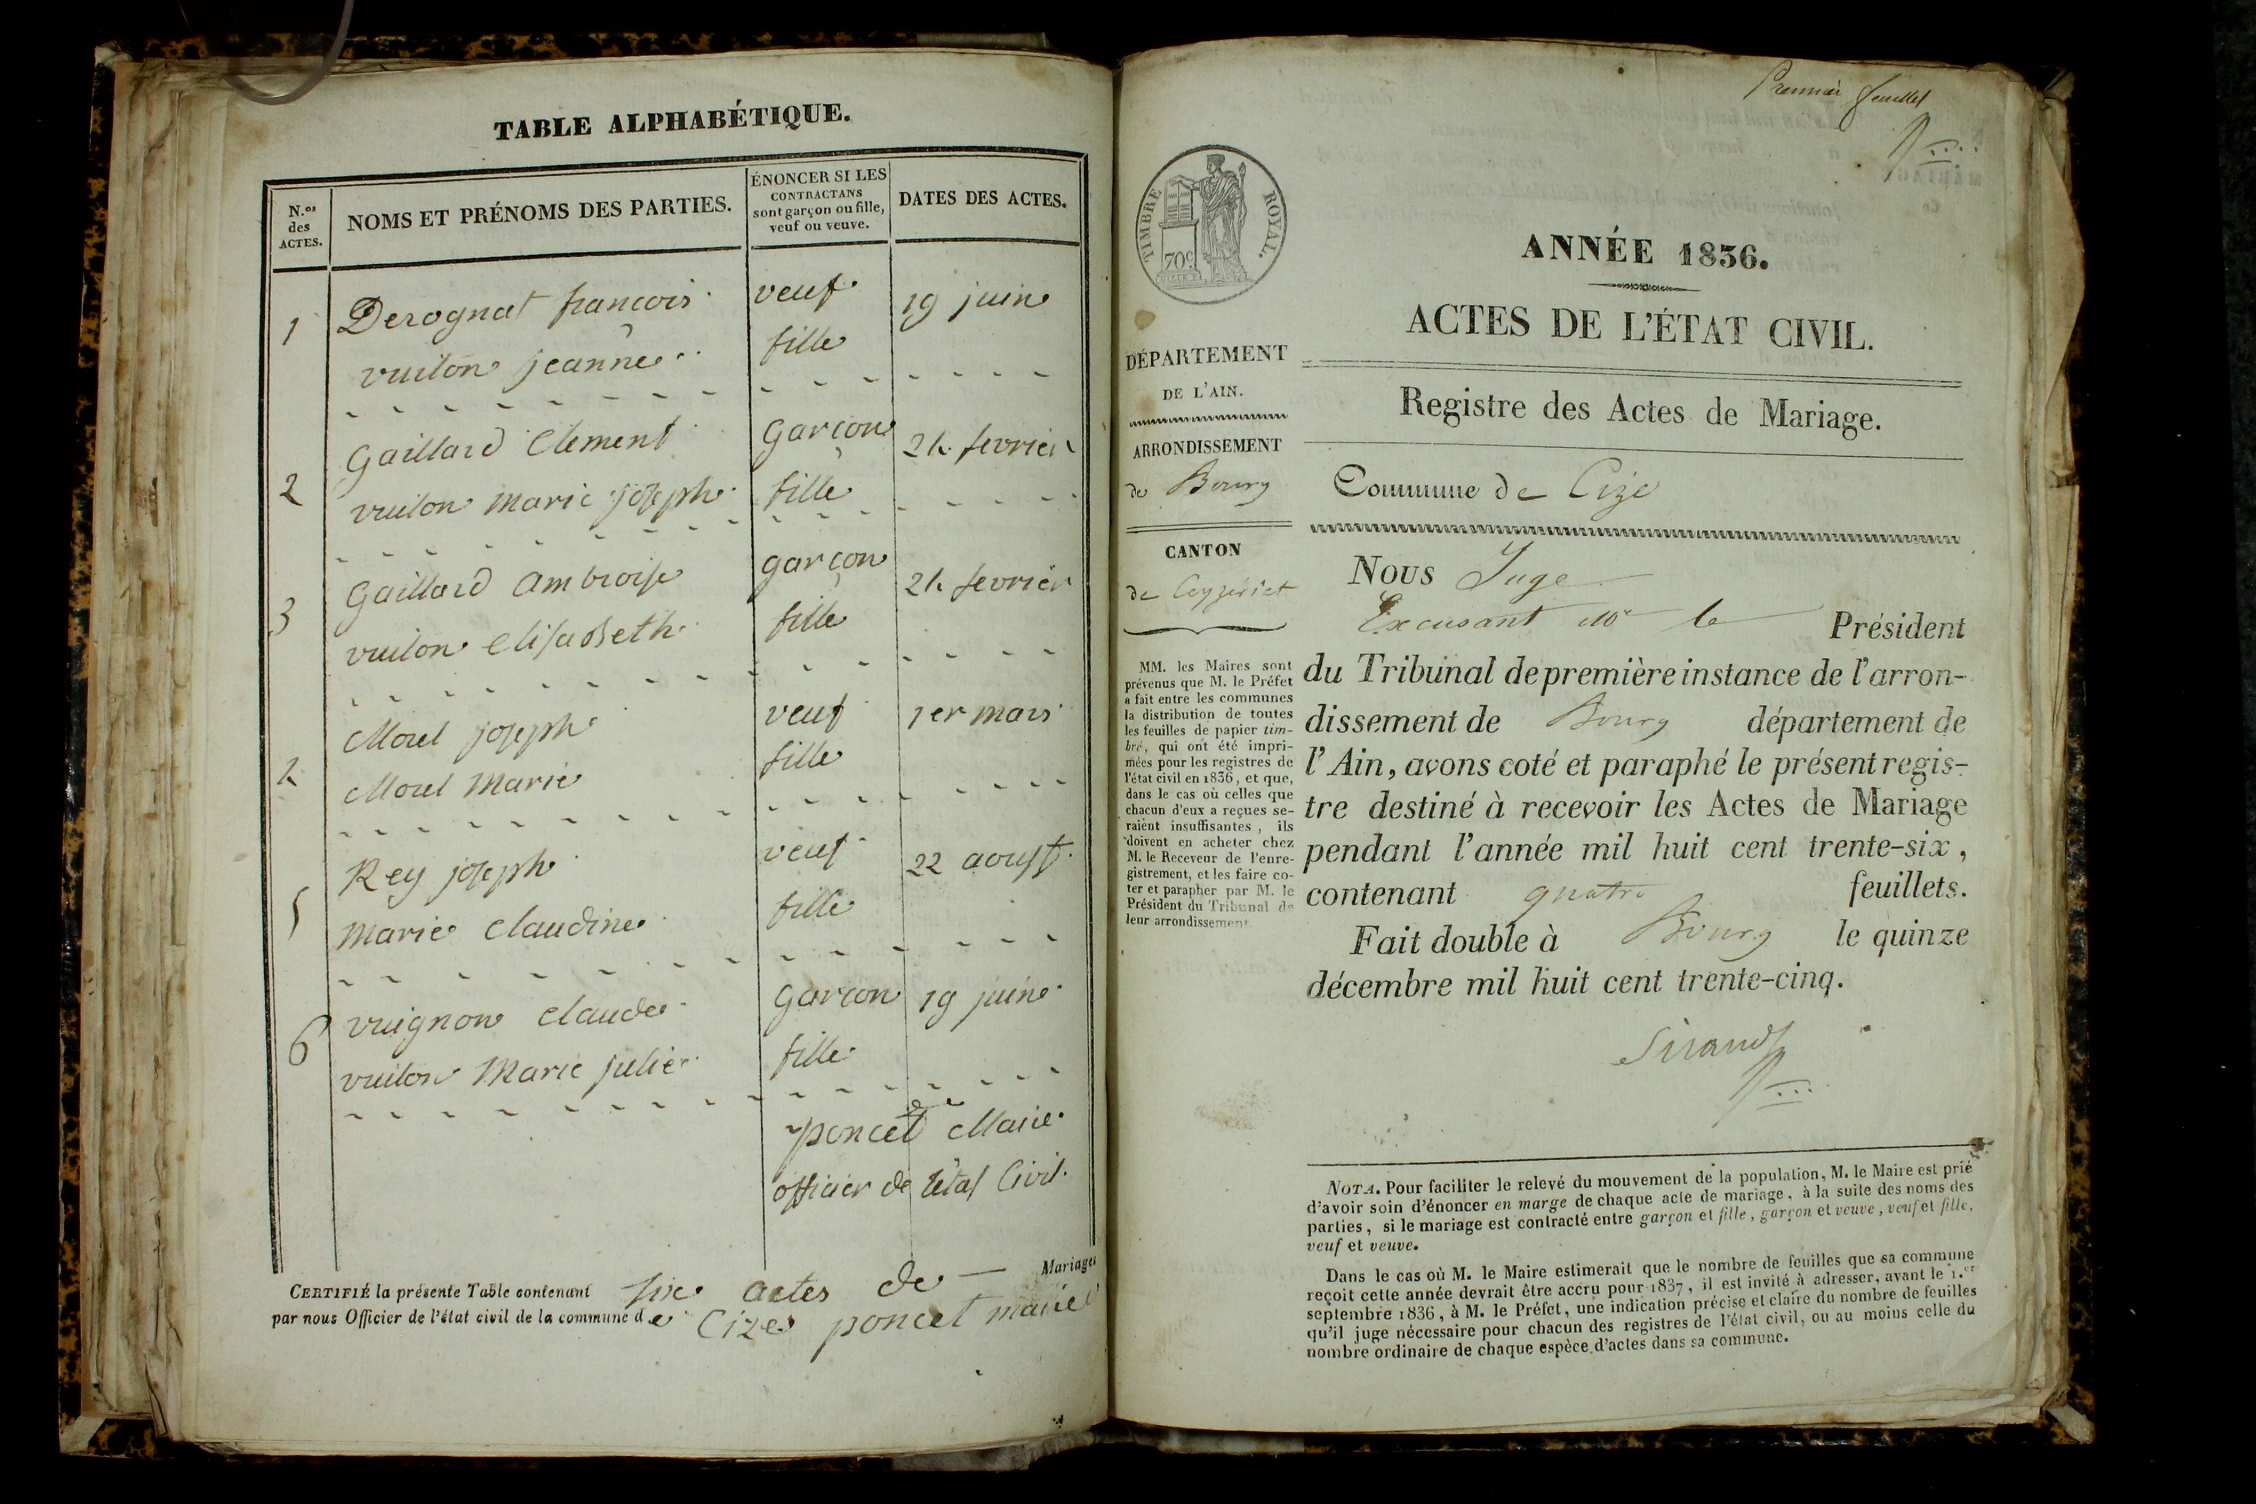 TABLE ALPHABÉTIQUE.
N.os des ACTES.
NOMS ET PRÉNOMS DES PARTIES.
ÉNONCER SI LES CONTRACTANS sont garçon ou fille, veuf ou veuve.
DATES DES ACTES.
1 Derognat francois veuf 19 juin
vuiton jeanne fille
2 Gaillard Clement garcon 24 fevrier
vuiton marie joseph fille
3 Gaillard ambroise garcon 24 fevrier
vuiton elisabeth fille
4 Morel joseph veuf 1er mars
Morel marie fille
5 Rey joseph veuf 22 aoust
marie claudine fille
6 vuignon claude garcon 19 juin
vuiton Marie julie fille
poncet Maire
officier de létat Civil
CERTIFIÉ la présente Table contenant six actes de Mariages
par nous Officier de l'état civil de la commune de Cize poncet maire
Premier feuillet
TIMBRE ROYAL.
70c
DÉPARTEMENT
DE L'AIN.
ARRONDISSEMENT
de Bourg
CANTON
de Ceyzériat
MM. les Maires sont
prévenus que M. le Préfet
a fait entre les communes
la distribution de toutes
les feuilles de papier tim-
bré, qui ont été impri-
mées pour les registres de
l'état civil en 1836, et que,
dans le cas où celles que
chacun d'eux a reçues se-
raient insuffisantes, ils
doivent en acheter chez
M. le Receveur de l'enre-
gistrement, et les faire co-
ter et parapher par M. le
Président du Tribunal de
leur arrondissement
ANNÉE 1836.
ACTES DE L'ÉTAT CIVIL.
Registre des Actes de Mariage.
Commune de Cize
Nous Juge
Excusant Mr le Président
du Tribunal de première instance de l'arron-
dissement de Bourg département de
l'Ain, avons coté et paraphé le présent regis-
tre destiné à recevoir les Actes de Mariage
pendant l'année mil huit cent trente-six,
contenant quatre feuillets.
Fait double à Bourg le quinze
décembre mil huit cent trente-cinq.
Sirand
NOTA. Pour faciliter le relevé du mouvement de la population, M. le Maire est prié
d'avoir soin d'énoncer en marge de chaque acte de mariage, à la suite des noms des
parties, si le mariage est contracté entre garçon et fille, garçon et veuve, veuf et fille,
veuf et veuve.
Dans le cas où M. le Maire estimerait que le nombre de feuilles que sa commune
reçoit cette année devrait être accru pour 1837, il est invité à adresser, avant le 1.er
septembre 1836, à M. le Préfet, une indication précise et claire du nombre de feuilles
qu'il juge nécessaire pour chacun des registres de l'état civil, ou au moins celle du
nombre ordinaire de chaque espèce d'actes dans sa commune.